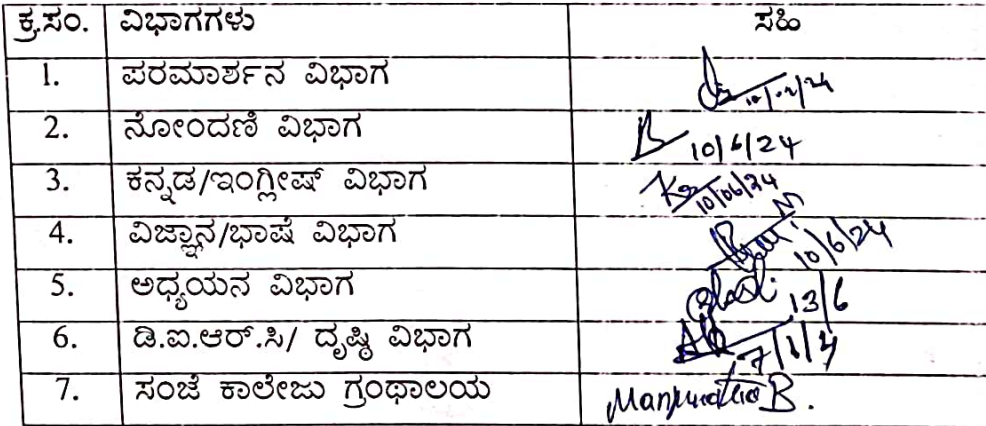 ಕ್ರ.ಸಂ. ವಿಭಾಗಗಳು ಸಹಿ
1. ಪರಮಾರ್ಶನ ವಿಭಾಗ
2. ನೋಂದಣಿ ವಿಭಾಗ 10/6/24
3. ಕನ್ನಡ/ಇಂಗ್ಲೀಷ್ ವಿಭಾಗ 10/06/24
4. ವಿಜ್ಞಾನ/ಭಾಷೆ ವಿಭಾಗ 10/6/24
5. ಅಧ್ಯಯನ ವಿಭಾಗ 13/6
6. ಡಿ.ಐ.ಆರ್.ಸಿ/ ದೃಷ್ಠಿ ವಿಭಾಗ
7. ಸಂಜೆ ಕಾಲೇಜು ಗ್ರಂಥಾಲಯ Manjunatha B.